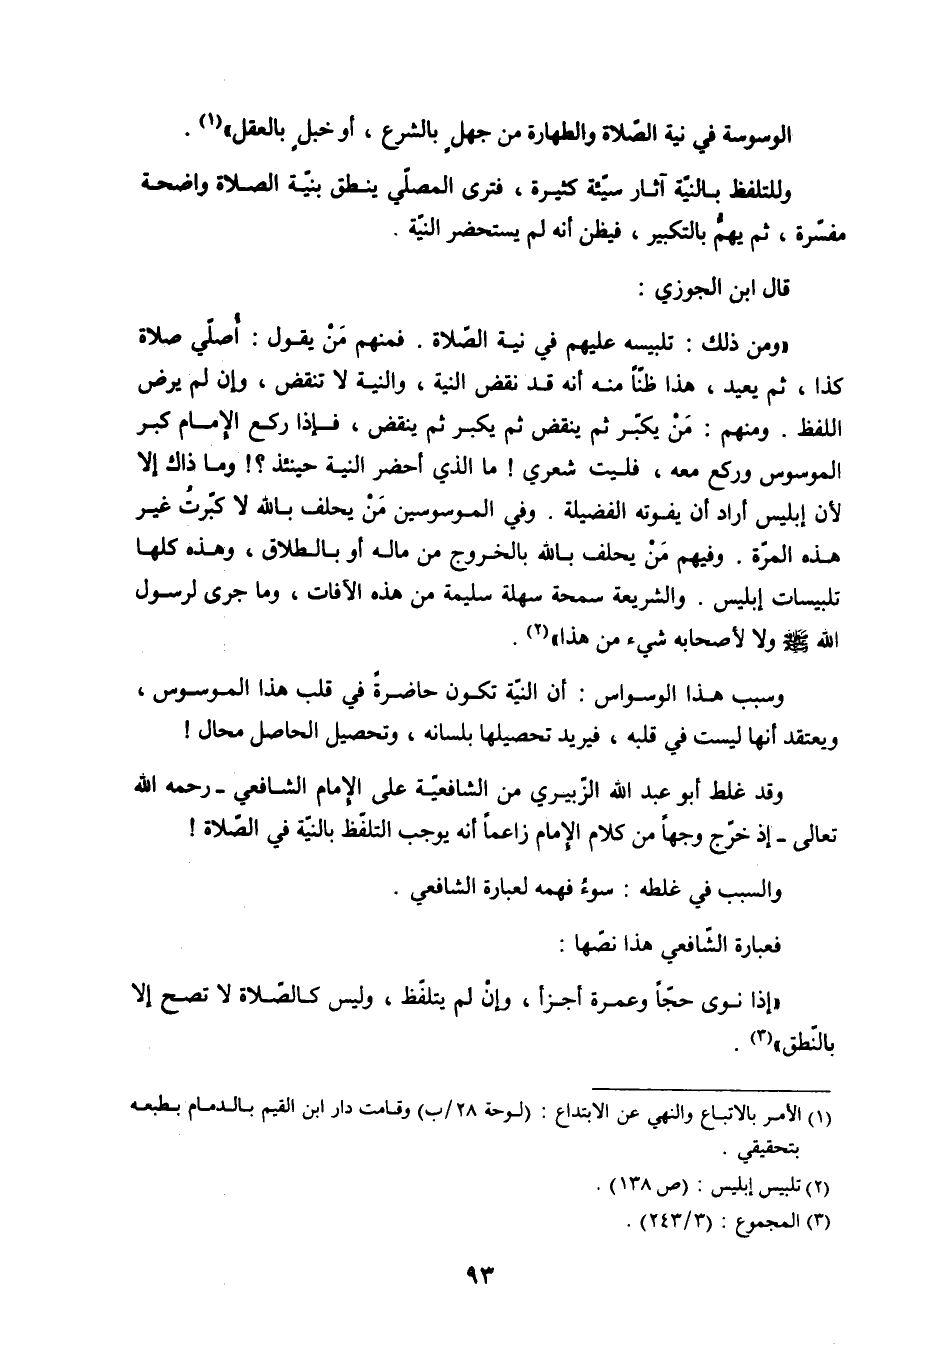 الوسوسة في نية الصّلاة والطهارة من جهلٍ بالشرع ، أو خبلٍ بالعقل»(١) .
وللتلفظ بالنيّة آثار سيّئة كثيرة ، فترى المصلّي ينطق بنيّة الصلاة واضحة
مفسّرة ، ثم يهمُّ بالتكبير ، فيظن أنه لم يستحضر النيّة .
قال ابن الجوزي :
«ومن ذلك : تلبيسه عليهم في نية الصّلاة . فمنهم مَنْ يقول : أُصلّي صلاة
كذا ، ثم يعيد ، هذا ظنّاً منه أنه قد نقض النية ، والنية لا تنقض ، وإن لم يرض
اللفظ . ومنهم : مَنْ يكبّر ثم ينقض ثم يكبر ثم ينقض ، فإذا ركع الإمام كبر
الموسوس وركع معه ، فليت شعري ! ما الذي أحضر النية حينئذ ؟! وما ذاك إلا
لأن إبليس أراد أن يفوته الفضيلة . وفي الموسوسين مَنْ يحلف بالله لا كبّرتُ غير
هذه المرّة . وفيهم مَنْ يحلف بالله بالخروج من ماله أو بالطلاق ، وهذه كلها
تلبيسات إبليس . والشريعة سمحة سهلة سليمة من هذه الآفات ، وما جرى لرسول
الله ﷺ ولا لأصحابه شيء من هذا»(٢) .
وسبب هذا الوسواس : أن النيّة تكون حاضرةً في قلب هذا الموسوس ،
ويعتقد أنها ليست في قلبه ، فيريد تحصيلها بلسانه ، وتحصيل الحاصل محال !
وقد غلط أبو عبد الله الزّبيري من الشافعيّة على الإمام الشافعي ـ رحمه الله
تعالى ـ إذ خرّج وجهاً من كلام الإمام زاعماً أنه يوجب التلفّظ بالنيّة في الصّلاة !
والسبب في غلطه : سوءُ فهمه لعبارة الشافعي .
فعبارة الشّافعي هذا نصّها :
«إذا نوى حجّاً وعمرة أجزأ ، وإنْ لم يتلفّظ ، وليس كالصّلاة لا تصح إلا
بالنّطق»(٣) .
(١) الأمر بالاتباع والنهي عن الابتداع : (لوحة ٢٨/ب) وقامت دار ابن القيم بالدمام بطبعه
بتحقيقي .
(٢) تلبيس إبليس : (ص ١٣٨) .
(٣) المجموع : (٢٤٣/٣) .
٩٣